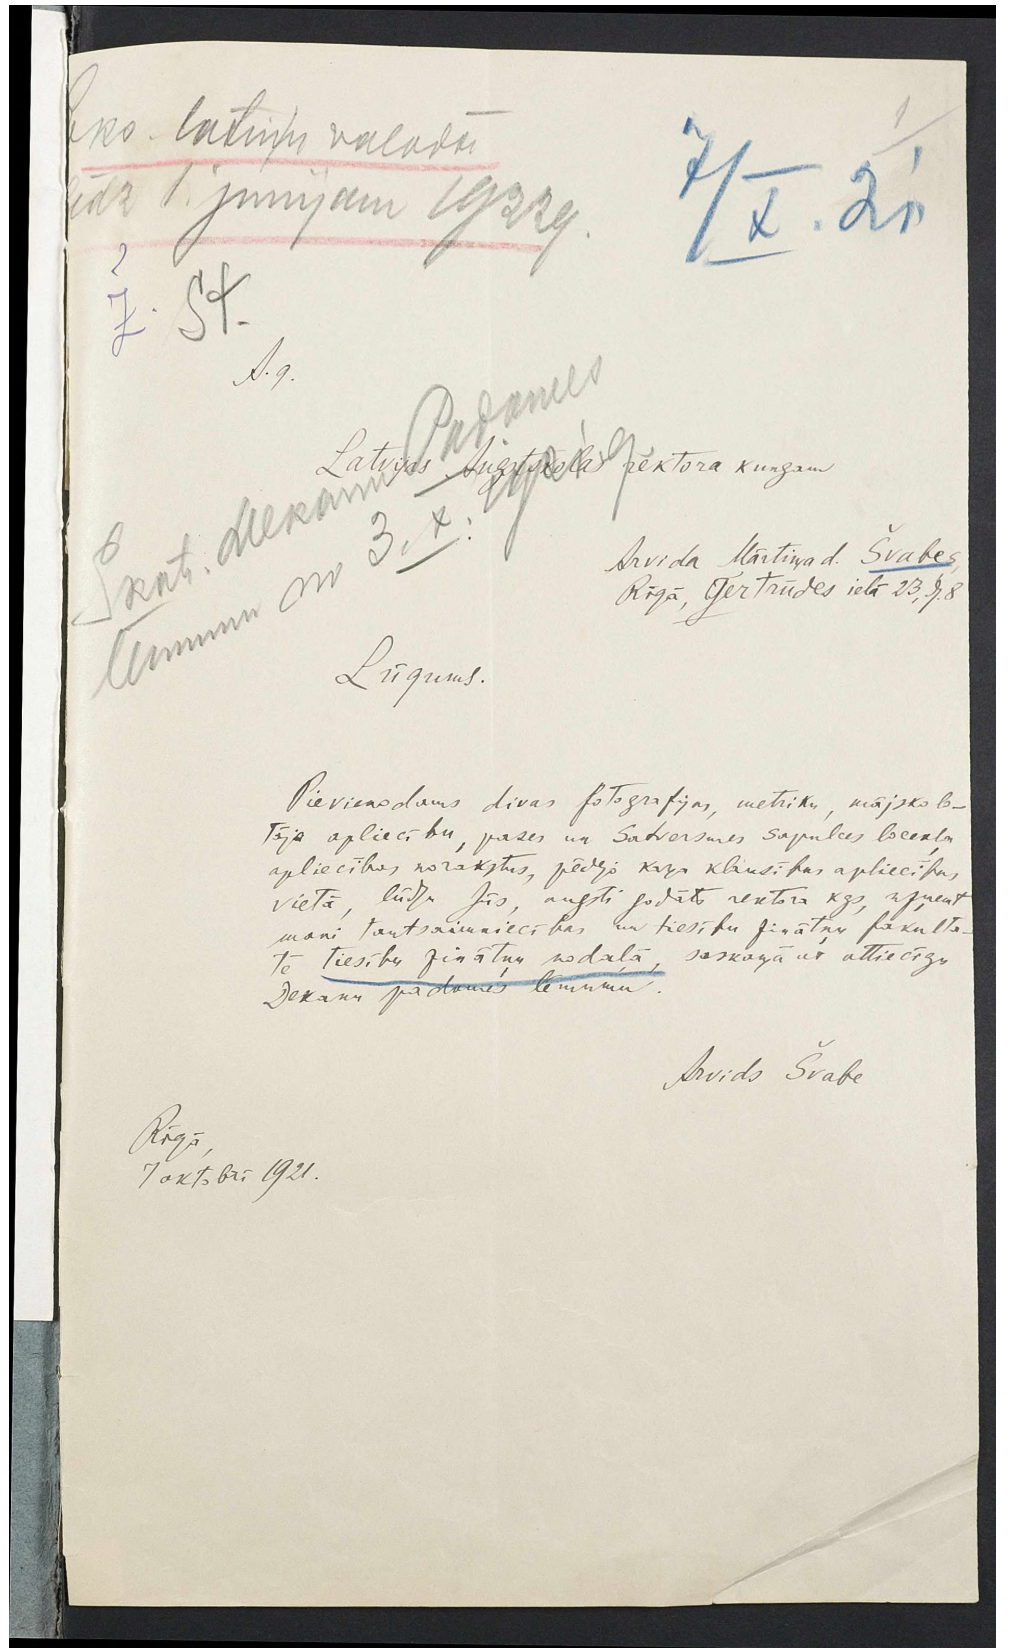 latiņu valodā
līdz 1. jūnijam 1922g.
7/X. 21
1
St.
A. g.
Latvijas Augstskolas rektora kungam
Skat. Dekanu Padomes
lēmumu no 3. X. 1921 g.
Arvida Mārtiņa d. Švabes,
Rīgā, Ģertrūdes ielā 23, dz. 8
Lūgums.
Pievienodams divas fotografijas, metriku, mājskolo-
tāja apliecību, pases un Satversmes Sapulces locekļa
apliecības norakstus, pēdējo kaŗa klausības apliecības
vietā, lūdzu Jūs, augsti godāts rektora kgs, uzņemt
mani tautsaimniecības un tiesību zinātņu fakulta-
tē tiesību zinātņu nodaļā, saskaņā ar attiecīgu
Dekanu padomes lēmumu.
Arvids Švabe
Rīgā,
7 oktobrī 1921.